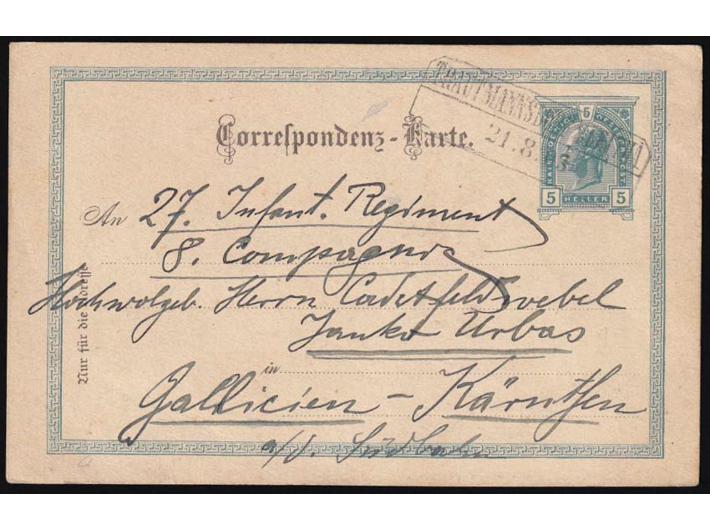 Correspondenz-Karte.
21.8.
5
5 HELLER 5
An 27. Infant. Regiment
8. Compagnie
Hochwolgeb. Herrn Cadetfeldwebel
Janko Urbas
in
Gallicien - Kärnthen
a/d. Südbahn
Nur für die Adresse